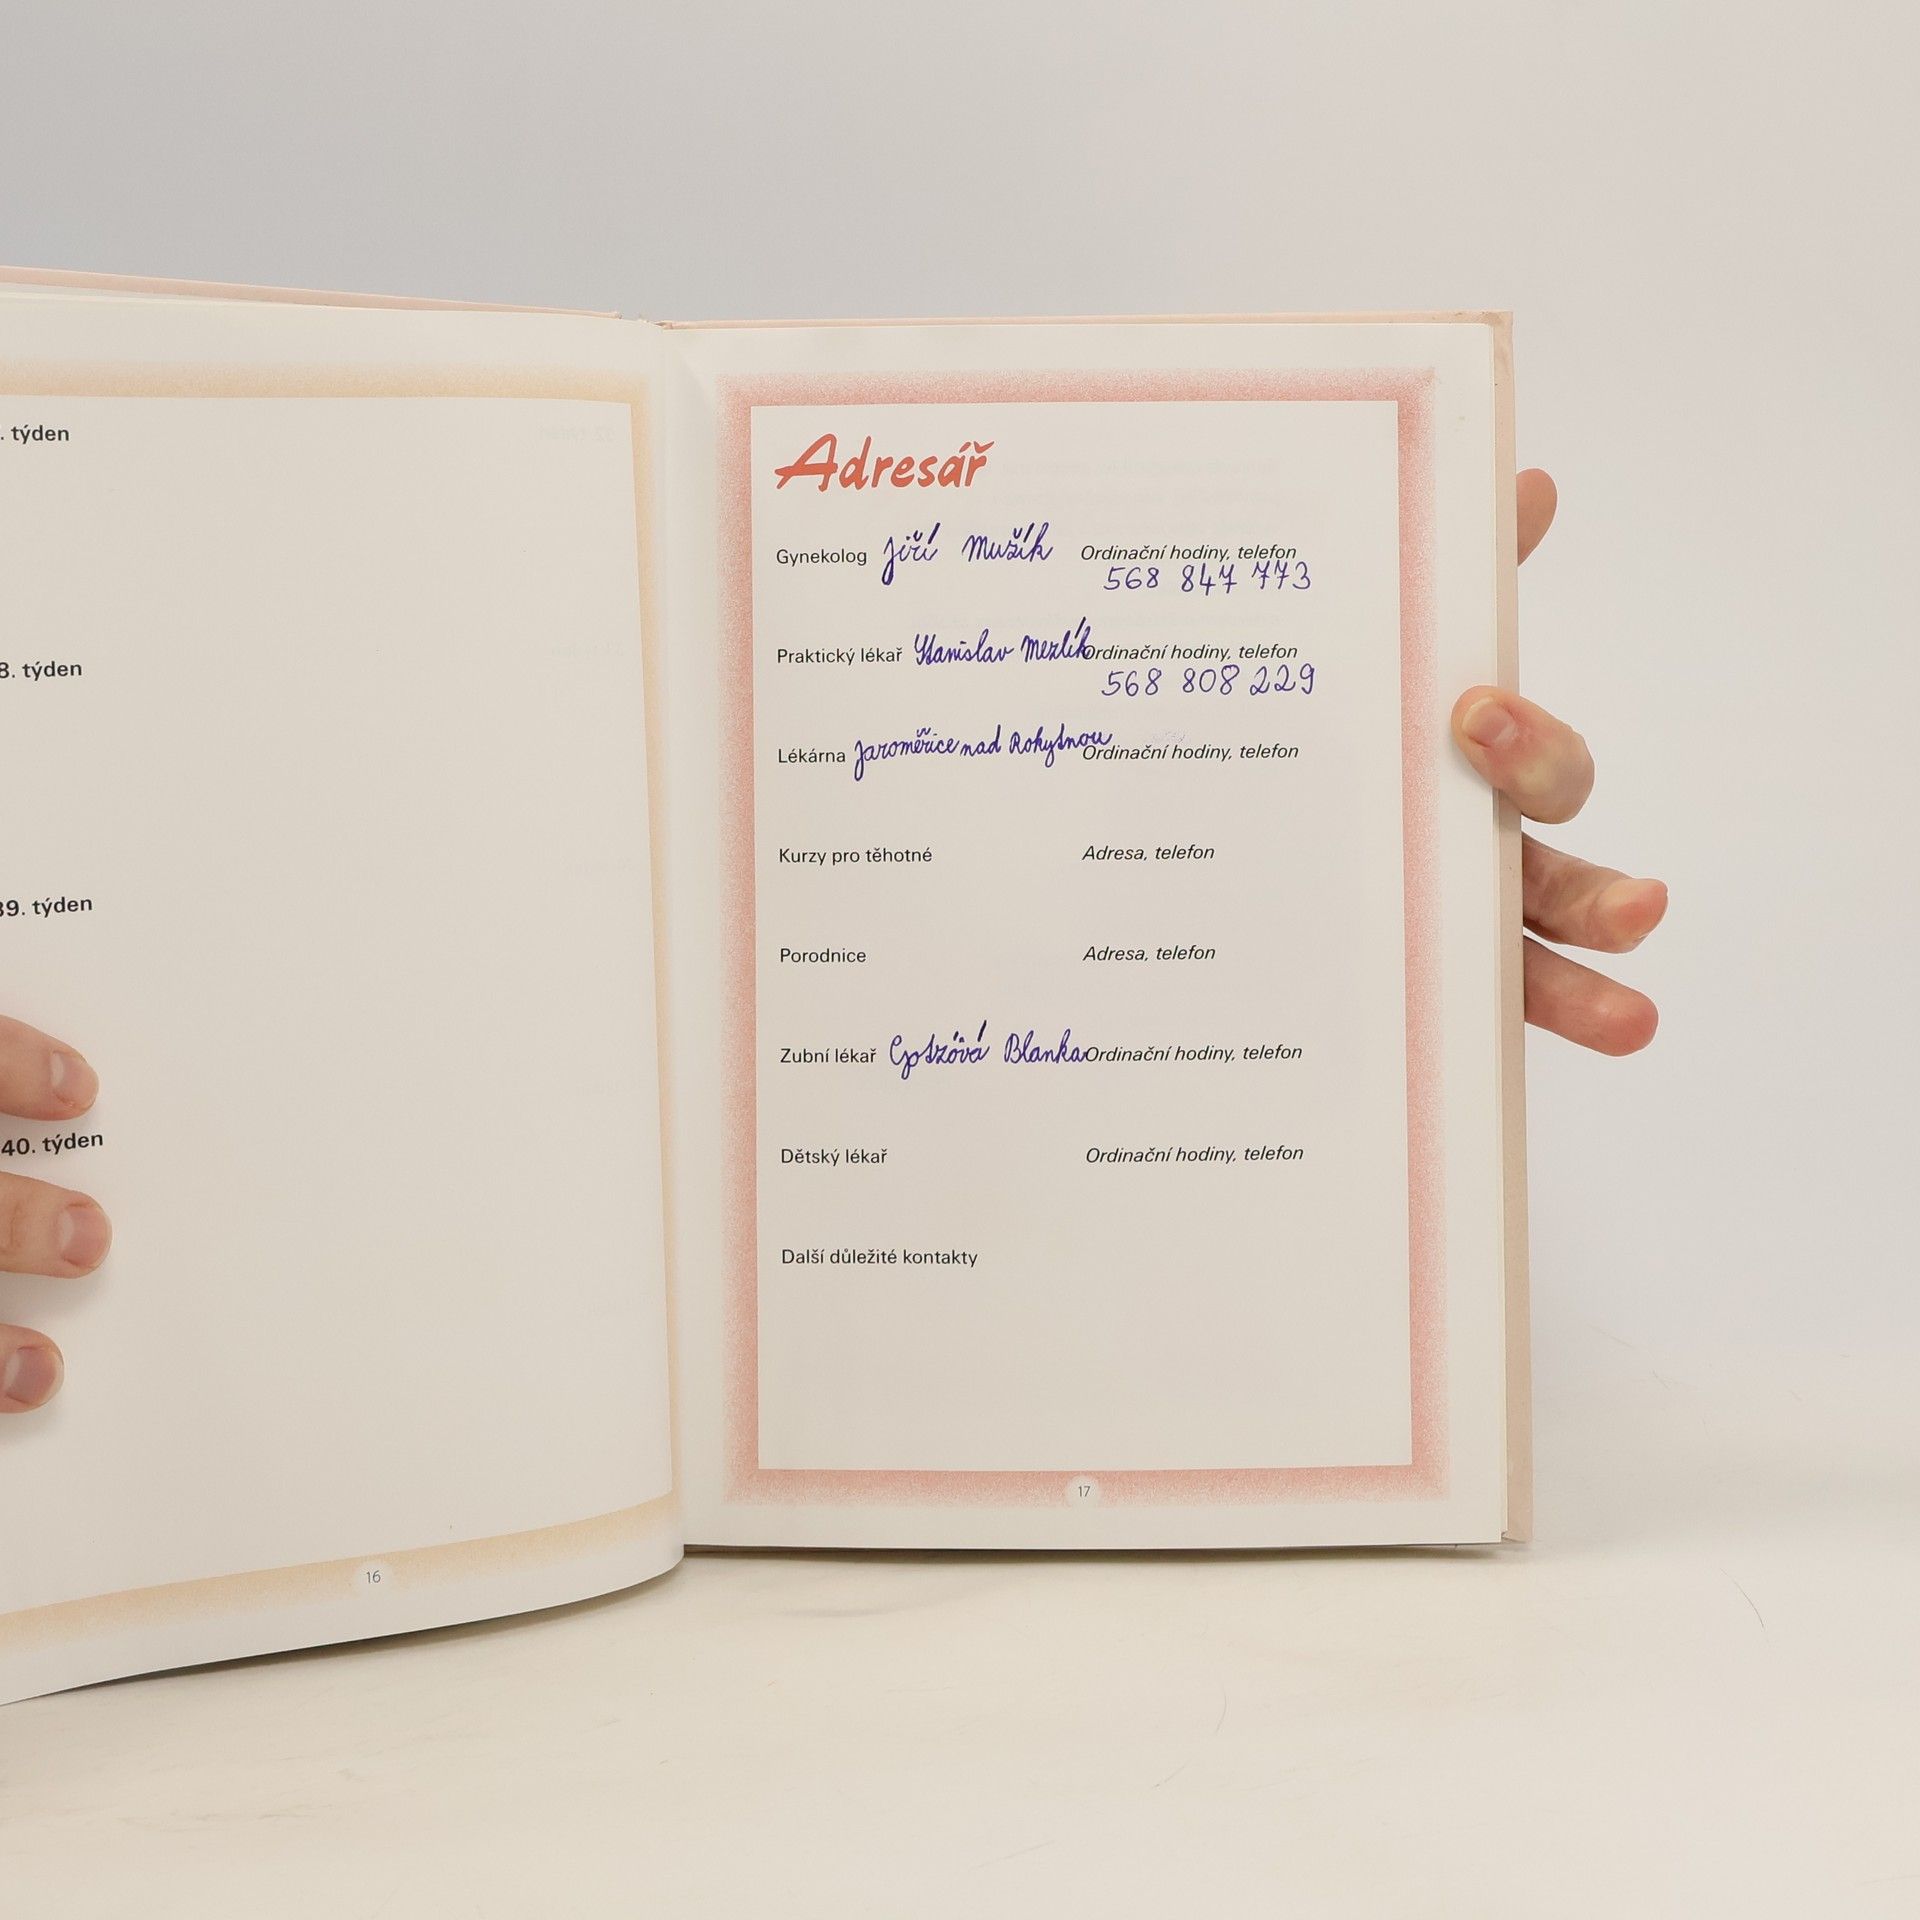 . týden
8. týden
39. týden
40. týden
16
Adresář
Gynekolog Jiří Mužík Ordinační hodiny, telefon
568 847 773
Praktický lékař Stanislav Mezlík Ordinační hodiny, telefon
568 808 229
Lékárna Jaroměřice nad Rokytnou Ordinační hodiny, telefon
Kurzy pro těhotné Adresa, telefon
Porodnice Adresa, telefon
Zubní lékař Blanka Ordinační hodiny, telefon
Dětský lékař Ordinační hodiny, telefon
Další důležité kontakty
17